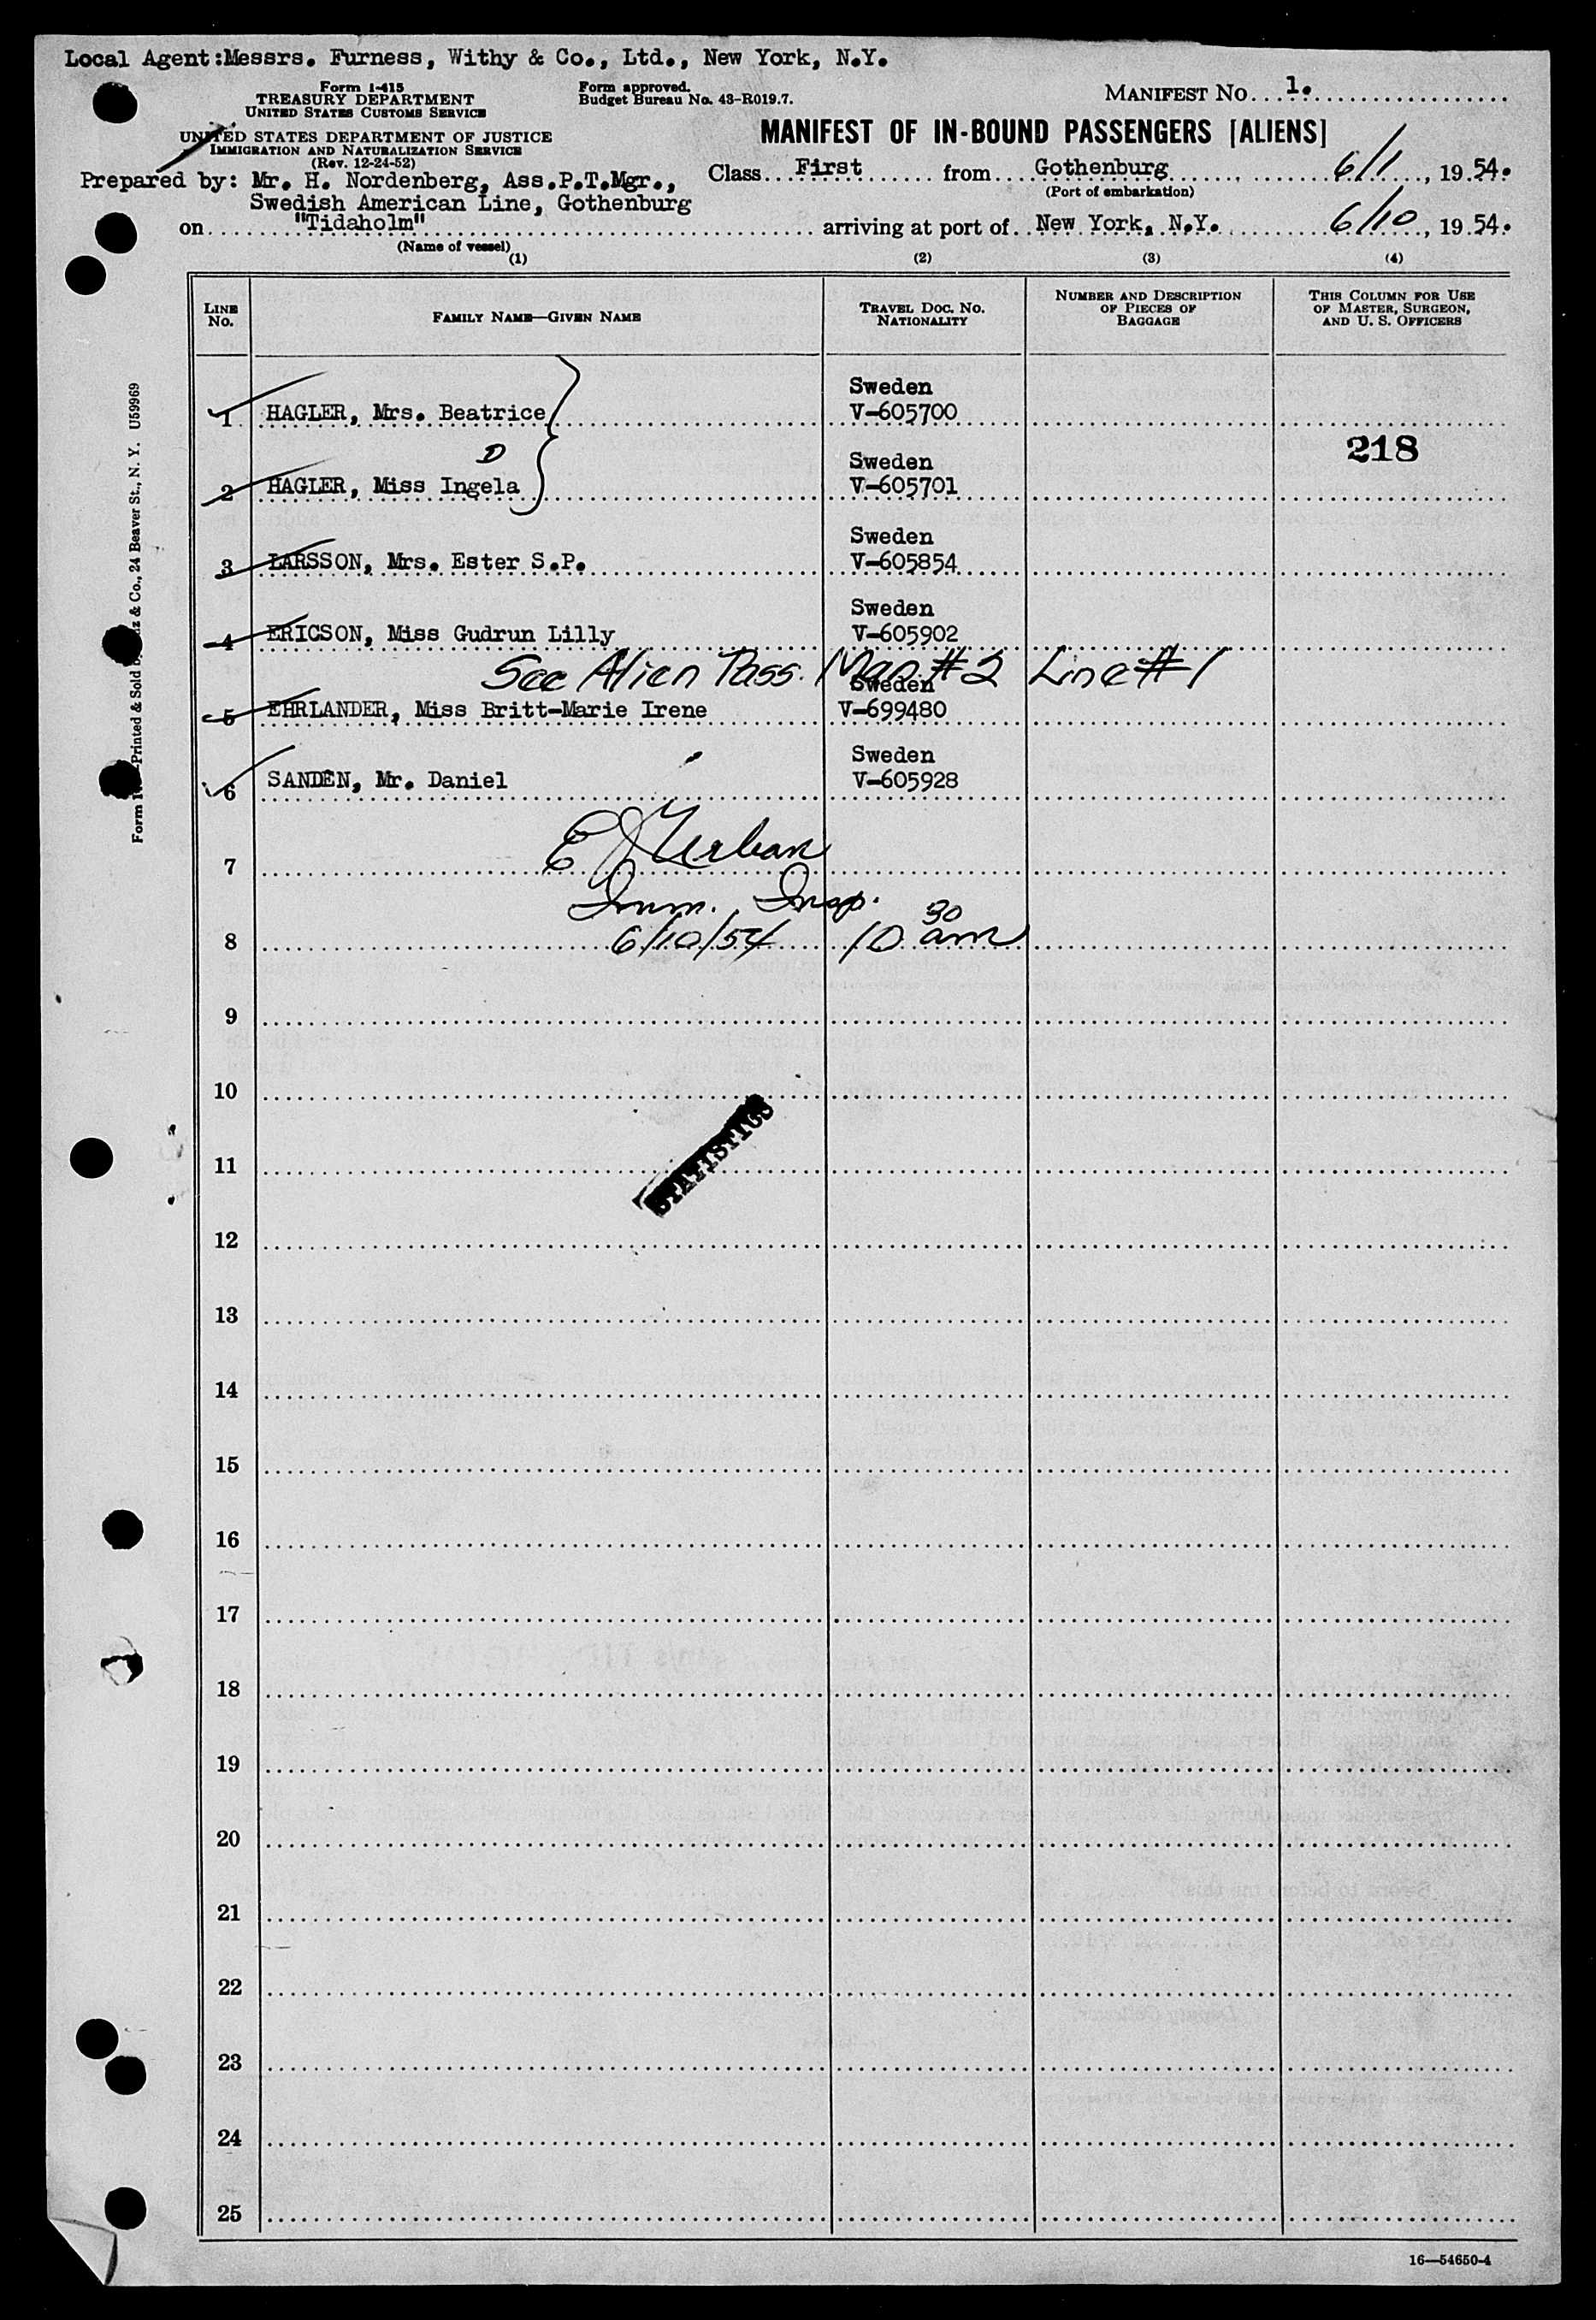 Local Agent:Messrs. Furness, Withy & Co., Ltd., New York, N.Y.
Form I-415
TREASURY DEPARTMENT
UNITED STATES CUSTOMS SERVICE
Form approved.
Budget Bureau No. 43-R019.7.
MANIFEST NO. 1.
UNITED STATES DEPARTMENT OF JUSTICE
IMMIGRATION AND NATURALIZATION SERVICE
(Rev. 12-24-52)
MANIFEST OF IN-BOUND PASSENGERS [ALIENS]
Class First from Gothenburg 6/1, 1954.
(Port of embarkation)
Prepared by: Mr. H. Nordenberg, Ass.P.T.Mgr.,
Swedish American Line, Gothenburg
on "Tidaholm" arriving at port of New York, N.Y. 6/10, 1954.
(Name of vessel)
(1) (2) (3) (4)
LINE NO.
FAMILY NAME—GIVEN NAME
TRAVEL DOC. NO.
NATIONALITY
NUMBER AND DESCRIPTION
OF PIECES OF
BAGGAGE
THIS COLUMN FOR USE
OF MASTER, SURGEON,
AND U. S. OFFICERS
Sweden
1 HAGLER, Mrs. Beatrice V-605700
218
D Sweden
2 HAGLER, Miss Ingela V-605701
Sweden
3 LARSSON, Mrs. Ester S.P. V-605854
Sweden
4 ERICSON, Miss Gudrun Lilly V-605902
See Alien Pass. Man. #2 Line #1
Sweden
5 EHRLANDER, Miss Britt-Marie Irene V-699480
Sweden
6 SANDÉN, Mr. Daniel V-605928
E J Urban
7
Imm. Insp.
8 6/10/54 10 30 am
9
10
STATISTICS
11
12
13
14
15
16
17
18
19
20
21
22
23
24
25
16—54650-4
Printed & Sold by & Co., 24 Beaver St., N. Y. U59969